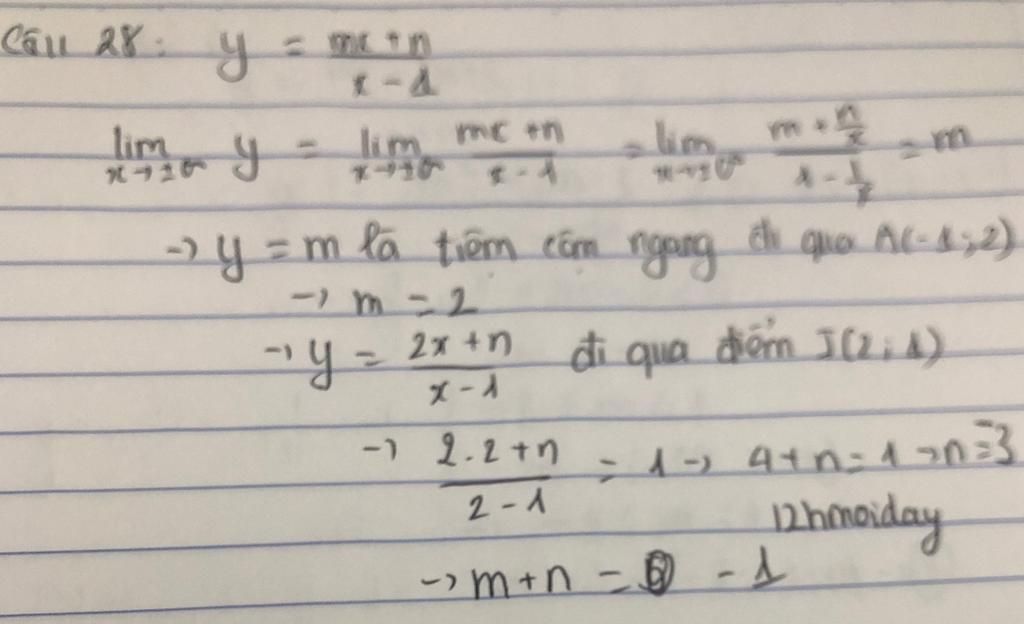 Câu 28: y = mx+n / x-1
lim x→±∞ y = lim x→±∞ mx+n / x-1 = lim x→±∞ m+n/x / 1-1/x = m
→ y = m là tiệm cận ngang đi qua A(-1;2)
→ m = 2
→ y = 2x+n / x-1 đi qua điểm I(2;1)
→ 2.2+n / 2-1 = 1 → 4+n=1 → n=-3
12hmoiday
→ m+n = -1